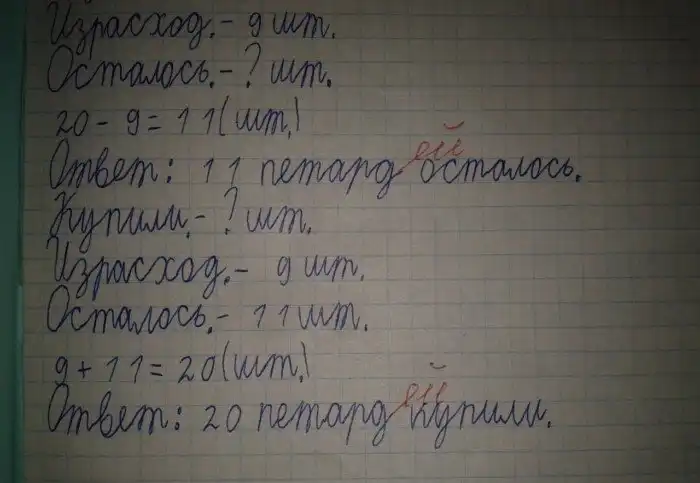 Израсход.- 9 шт.
Осталось.- ? шт.
20 - 9 = 11 (шт.)
ей
Ответ: 11 петард осталось.
Купили.- ? шт.
Израсход.- 9 шт.
Осталось.- 11 шт.
9 + 11 = 20 (шт.)
ей
Ответ: 20 петард купили.